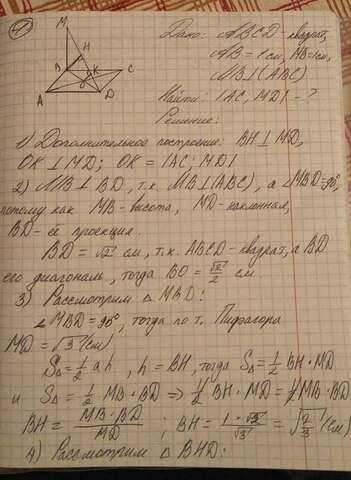 4
M
H
B
C
K
O
A
D
Дано: ABCD - квадрат,
AB = 1 см, MB = 1 см,
MB ⊥ (ABC).
Найти: |AC, MD| - ?
Решение:
1) Дополнительное построение: BH ⊥ MD,
OK ⊥ MD; OK = |AC; MD|
2) MB ⊥ BD, т.к. MB ⊥ (ABC), а ∠MBD = 90°,
потому как MB - высота, MD - наклонная,
BD - её проекция.
BD = √2 см, т.к. ABCD - квадрат, а BD
его диагональ, тогда BO = √2/2 см.
3) Рассмотрим △ MBD:
∠ MBD = 90°, тогда по т. Пифагора
MD = √3 (см)
S△ = 1/2 ah, h = BH, тогда S△ = 1/2 BH · MD
и S△ = 1/2 MB · BD ⇒ 1/2 BH · MD = 1/2 MB · BD
BH = MB · BD / MD ; BH = 1 · √2 / √3 = √2/3 (см)
4) Рассмотрим △ BHD: